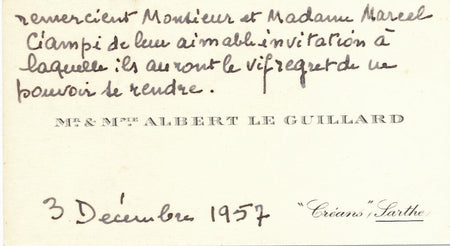 remercient Monsieur et Madame Marcel
Ciampi de leur aimable invitation à
laquelle ils auront le vif regret de ne
pouvoir se rendre.
MR. & MME ALBERT LE GUILLARD
3 Décembre 1957
"Créans", Sarthe